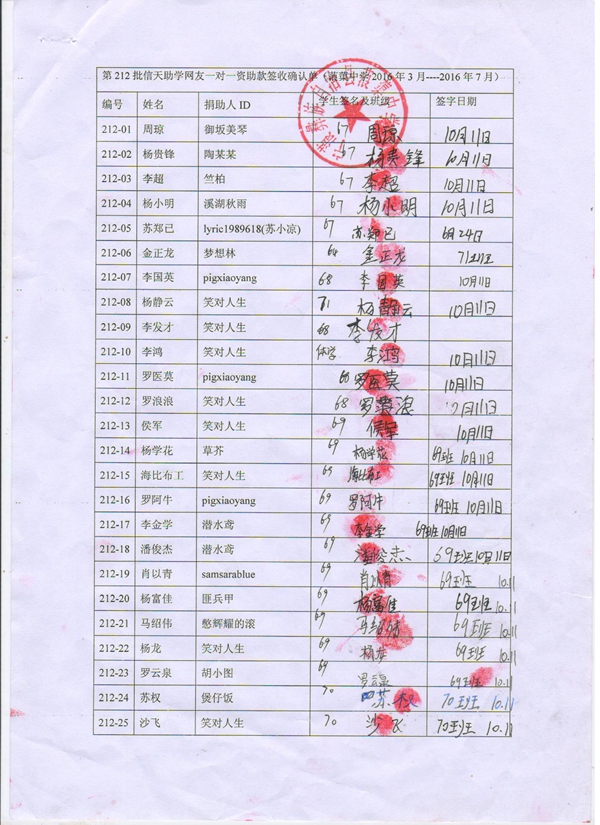 第212批信天助学网友一对一资助款签收确认单（蒗蕖中学2016年3月----2016年7月）
编号 姓名 捐助人ID 学生签名及班级 签字日期
212-01 周琼 御坂美琴 67 周琼 10月11日
212-02 杨贵锋 陶某某 67 杨贵锋 10月11日
212-03 李超 竺柏 67 李超 10月11日
212-04 杨小明 溪湖秋雨 67 杨小明 10月11日
212-05 苏郑已 lyric1989618(苏小凉) 67 苏郑已 6月24日
212-06 金正龙 梦想林 金正龙
212-07 李国英 pigxiaoyang 68 李国英 10月11日
212-08 杨静云 笑对人生 71 杨静云 10月11日
212-09 李发才 笑对人生 68 李发才
212-10 李鸿 笑对人生 李鸿 10月11日
212-11 罗医莫 pigxiaoyang 罗医莫 10月11日
212-12 罗浪浪 笑对人生 68 罗浪浪 10月11日
212-13 侯军 笑对人生 69 侯军 10月11日
212-14 杨学花 草芥 69 杨学花 69班 10月11日
212-15 海比布工 笑对人生 69 海比布工 69班 10月11日
212-16 罗阿牛 pigxiaoyang 69 罗阿牛 69班 10月11日
212-17 李金学 潜水鸢 69 李金学 69班 10月11日
212-18 潘俊杰 潜水鸢 69 潘俊杰 69班 10月11日
212-19 肖以青 samsarablue 69 肖以青 69班 10.11
212-20 杨富佳 匪兵甲 69 杨富佳 69班 10.11
212-21 马绍伟 憨辉耀的滚 69 马绍伟 69班 10.11
212-22 杨龙 笑对人生 69 杨龙 69班 10.11
212-23 罗云泉 胡小图 69 罗云泉 69班 10.11
212-24 苏权 煲仔饭 70 苏权 70班 10.11
212-25 沙飞 笑对人生 70 沙飞 70班 10.11